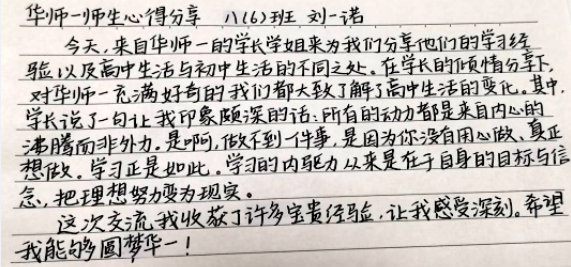 华师一师生心得分享 八(6)班 刘一诺
今天,来自华师一的学长学姐来为我们分享他们的学习经
验以及高中生活与初中生活的不同之处。在学长的倾情分享下,
对华师一充满好奇的我们都大致了解了高中生活的变化。其中,
学长说了一句让我印象颇深的话:所有的动力都是来自内心的
沸腾而非外力。是啊,做不到一件事,是因为你没有用心做、真正
想做。学习正是如此。学习的内驱力从来是在于自身的目标与信
念,把理想努力变为现实。
这次交流我收获了许多宝贵经验,让我感受深刻。希望
我能够圆梦华一!